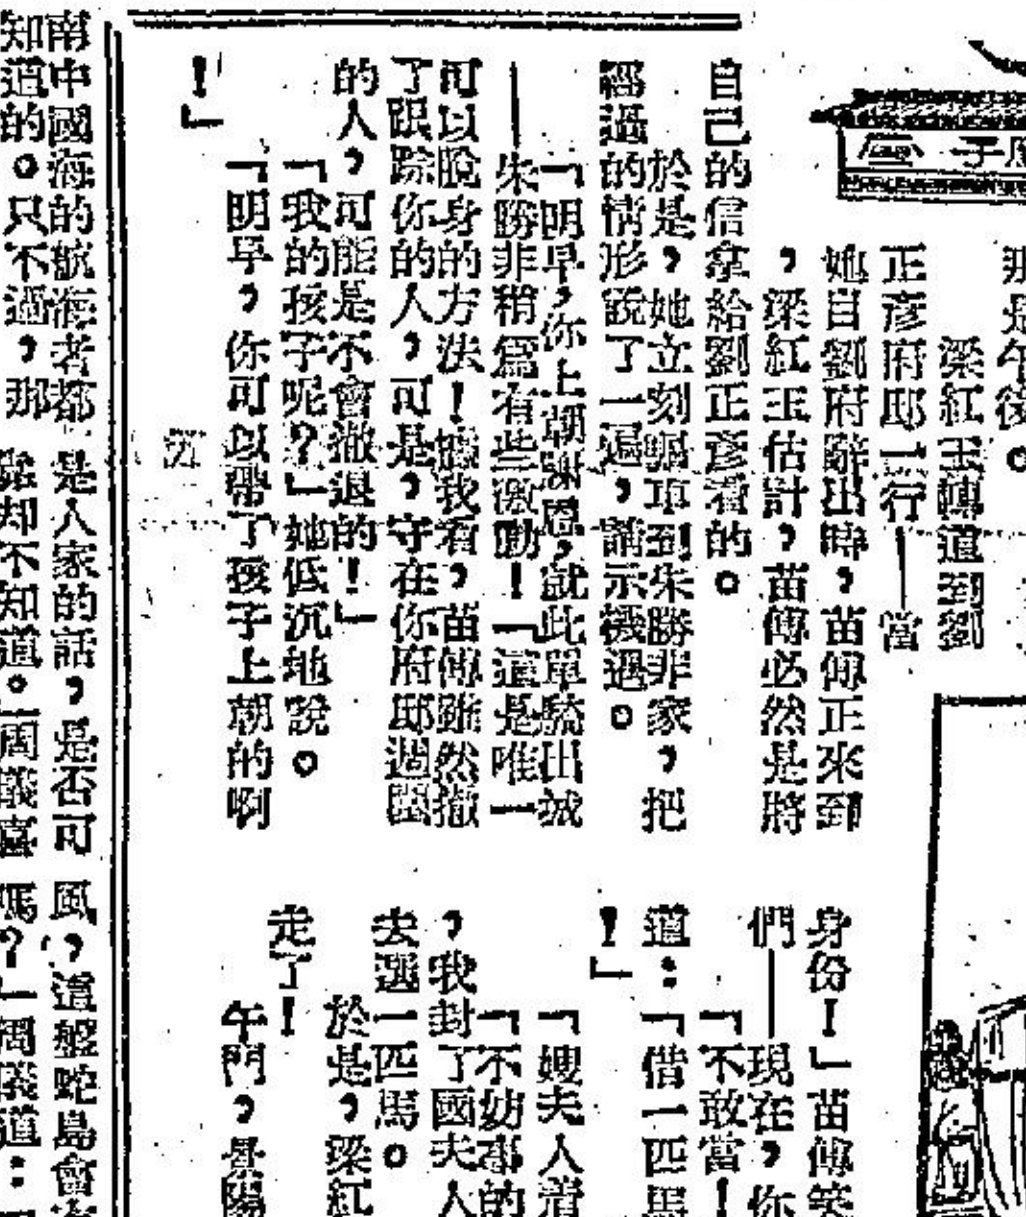 那是午後。
梁紅玉轉道到劉
正彥府邸一行——當
她自劉府辭出時，苗傅正來到
，梁紅玉估計，苗傅必然是將
自己的信拿給劉正彥看的。
於是，她立刻驅車到朱勝非家，把
經過的情形說了一遍，請示機遇。
「明早，你上朝謝恩，就此單騎出城
——朱勝非稍爲有些激動！「這是唯一
可以脫身的方法！據我看，苗傅雖然撤
了跟踪你的人，可是，守在你府邸週圍
的人，可能是不會撤退的！」
「我的孩子呢？」她低沉地說。
「明早，你可以帶了孩子上朝的啊
！」
身份！」苗傅笑
們——現在，你
「不敢當！
道：「借一匹馬
！」
「嫂夫人
「不妨事的
，我封了國夫人
去選一匹馬。
於是，梁紅
走了！
午門，景陽
南中國海的航海者都
知道的。只不過，那
是人家的話，是否可
却不知道。」周議
風，這盤蛇島會
嗎？」周議道：